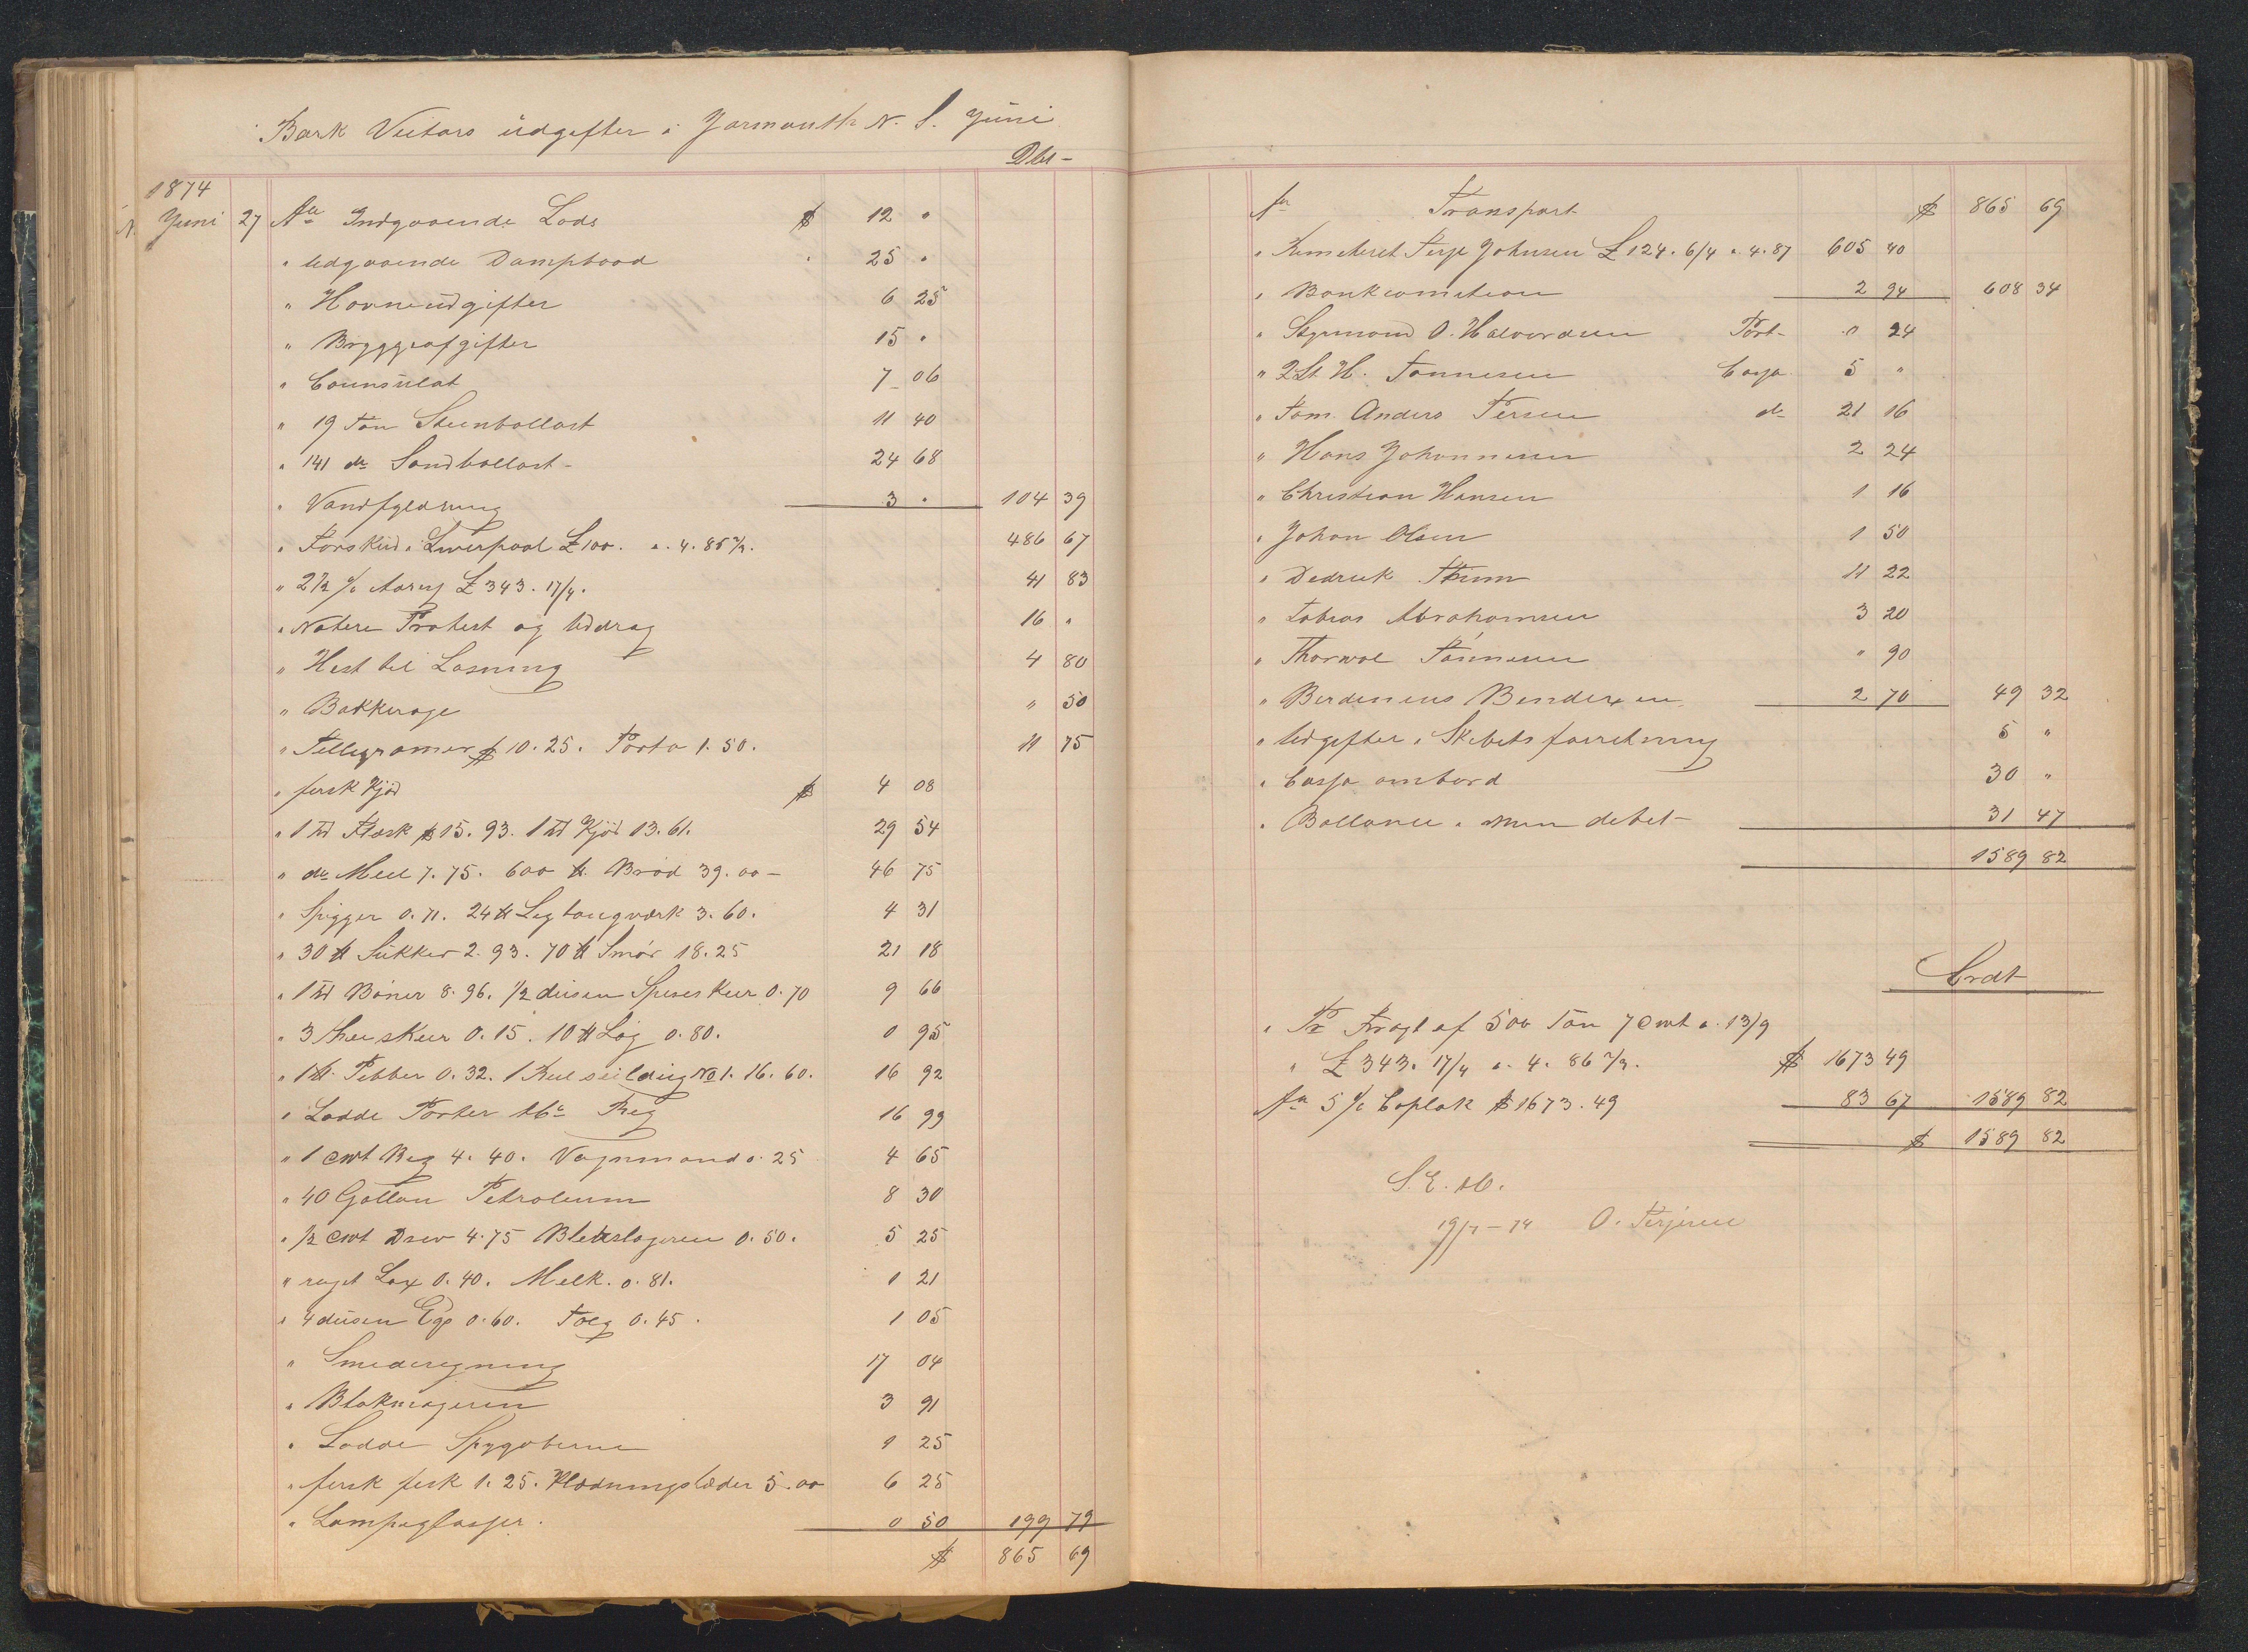 Bark Victors üdgifter i Yarmouth N. S. Jüni
Dbt-
1874
Juni 27 An Indgaaende Lods $ 12 "
" Udgaaende Dampbaad " 25 "
" Havneüdgifter 6 25
" Bryggeafgifter 15 "
" Counsülat 7 06
" 19 Ton Steenballast 11 40
" 141 do Sandballast - 24 68
" Vandfyldning 3 " 104 39
" Forskud i Liverpool £100. a. 4. 85 486 67
" 2½ % £ 343. 17/4. 41 83
" Notere Protest og Uddrag 16 "
" Hest til Losning 4 80
" Bakkerage " 50
" Tellegramer $ 10. 25. Porto 1. 50. 11 75
" fersk Kjød $ 4 08
" 1 Td Flæsk $15. 93. 1 Td Kjød 13. 61. 29 54
" do Meel 7. 75. 600 ℔ Brød 39. 00 - 46 75
" Spigger 0. 71. 24 ℔ 3. 60. 4 31
" 30 ℔ Sükker 2. 93. 70 ℔ Smør 18. 25 21 18
" 1 Td Bøner 8. 96. 1/2 düsen Speseskeer 0. 70 9 66
" 3 Theeskeer 0. 15. 10 ℔ Løg 0. 80. 0 95
" 1 ℔ Pebber 0. 32. 1 seildüg No 1. 16. 60. 16 92
" Lodde Porter Reg 16 99
" 1 Cwt Beg 4. 40. Vognmand 0. 25 4 65
" 40 Gallon Petroleum 8 30
" 1/2 Cwt Drev 4. 75 Blekslageren 0. 50. 5 25
" røget Lax 0. 40. Melk. 0. 81. 1 21
" 4 düsen Eg 0. 60. Talg 0. 45. 1 05
" Smederegning 17 04
" Blokmageren 3 91
" Lodde Spygaterne 1 25
" fersk fisk 1. 25. Klædningslæder 5. 00 6 25
" Lampeglasser. 0 50 199 79
$ 865 69
An Transport $ 865 69
" Remitteret Terje Johnsen £ 124. 6/4 a. 4. 87 605 40
" Bankcomition 2 94 608 34
" Styrmand O. Halvordsen Port- 0 24
" 2 St. H. Tønnesen Cassa 5 "
" Tøm. Anders Tersen do 21 16
" Hans Johannesen 2 24
" Christian Hansen 1 16
" Johan Olsen 1 50
" Dedrick Thum 11 22
" Tobias Abrahamsen 3 20
" Thorwal Tønnesen " 90
" Berdinius Bendixen 2 70 49 32
" Udgifter i Skibets forretning 5 "
" Cassa ombord 30 "
" Ballance i min debet - 31 47
1589 82
Crdt
" Pr Fragt af 500 Ton 7 Cwt a. 13/9
" £ 343. 17/4 a. 4. 86 $ 1673 49
An 5 % Caplak $ 1673. 49 83 67 1589 82
$ 1589 82
S. E. &c.
19/7 - 74 O. Terjesen